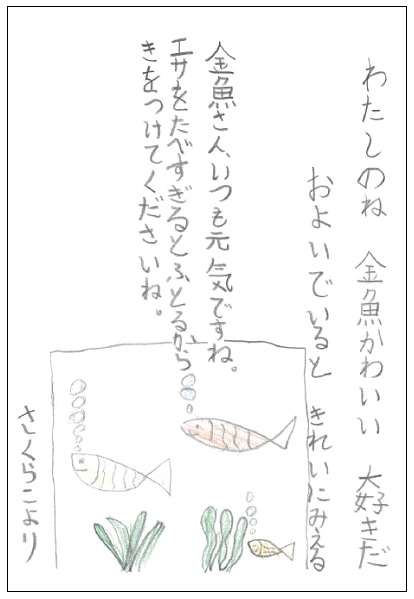 わたしのね 金魚かわいい 大好きだ
およいでいると きれいにみえる
金魚さん、いつも元気ですね。
エサをたべすぎるとふとるから
きをつけてくださいね。
さくらこより